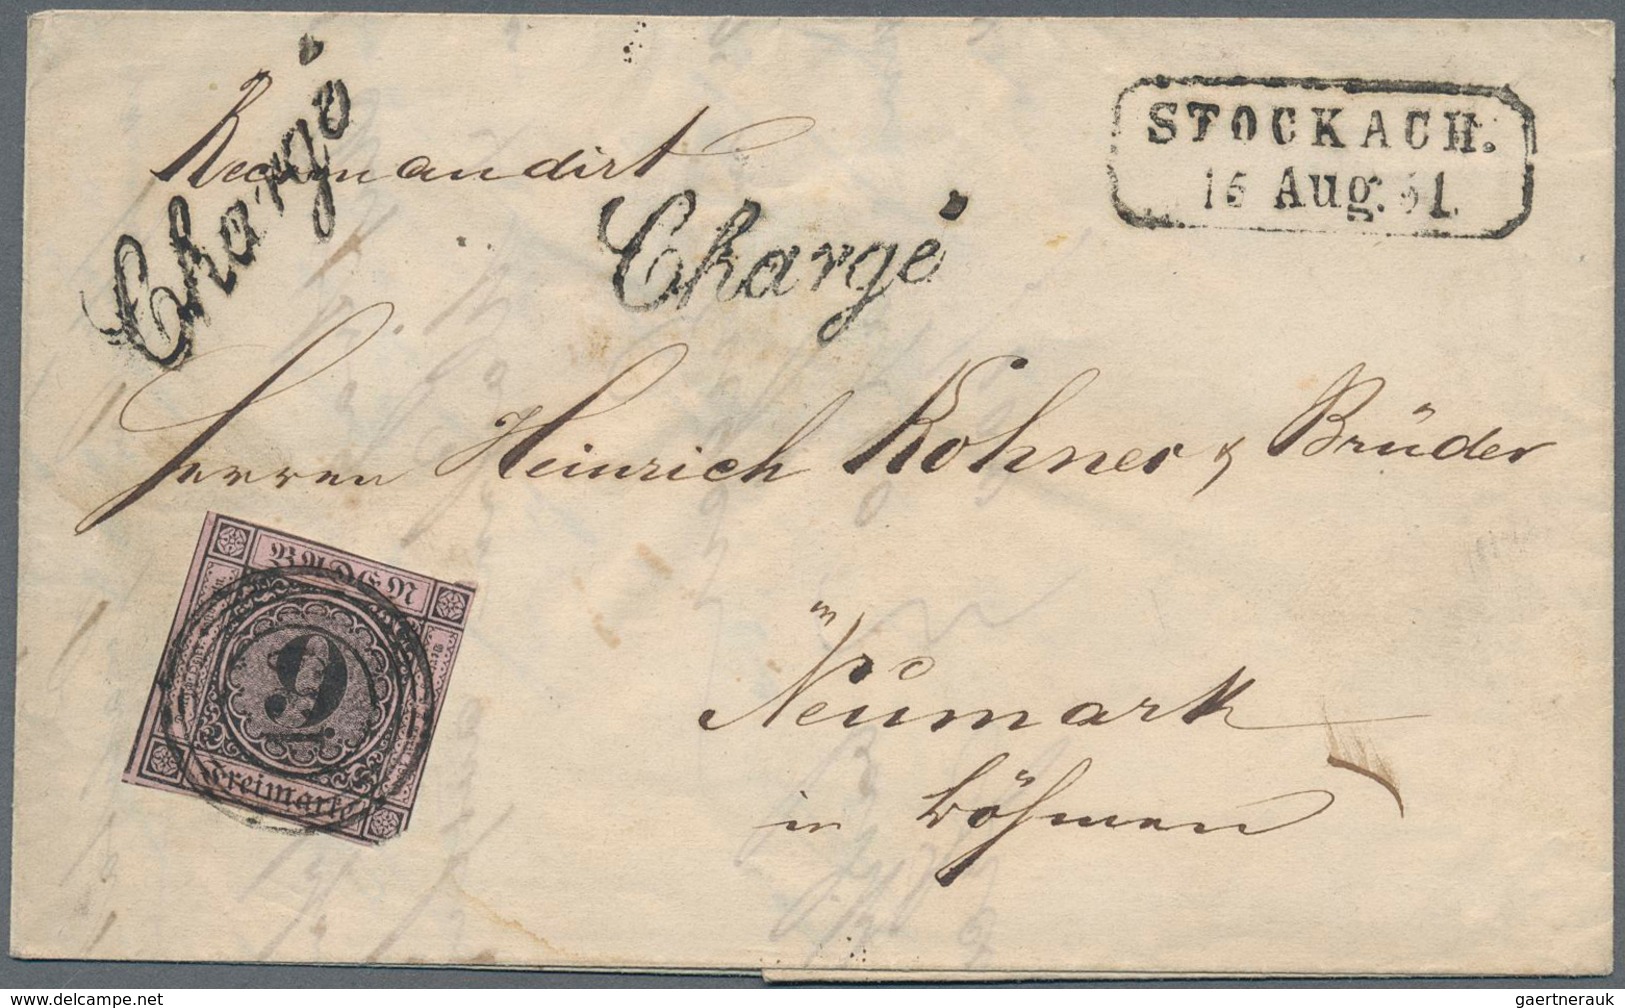 Recomandirt
Chargé
Chargé
STOCKACH.
15 Aug. 51.
Herren Heinrich Kohner & Brüder
in
Neumark
in Böhmen
BADEN
9
Freimarke
www.delcampe.net
gaertnerauk